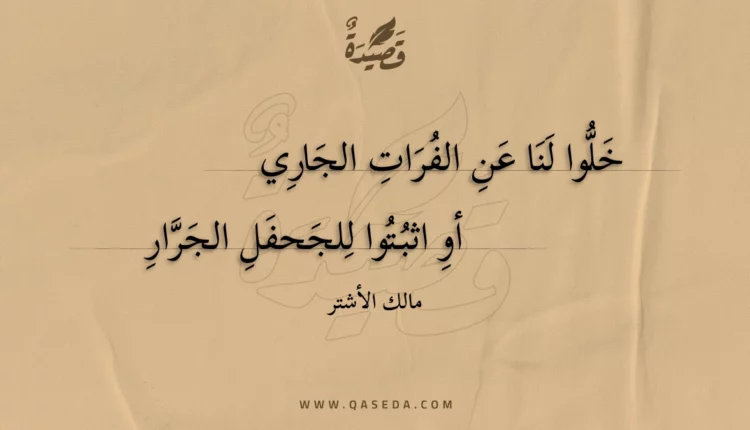 قَصِيْدَةٌ
خَلُّوا لَنَا عَنِ الفُرَاتِ الجَارِي
أوِ اثبُتُوا لِلجَحفَلِ الجَرَّارِ
مالك الأشتر
WWW.QASEDA.COM